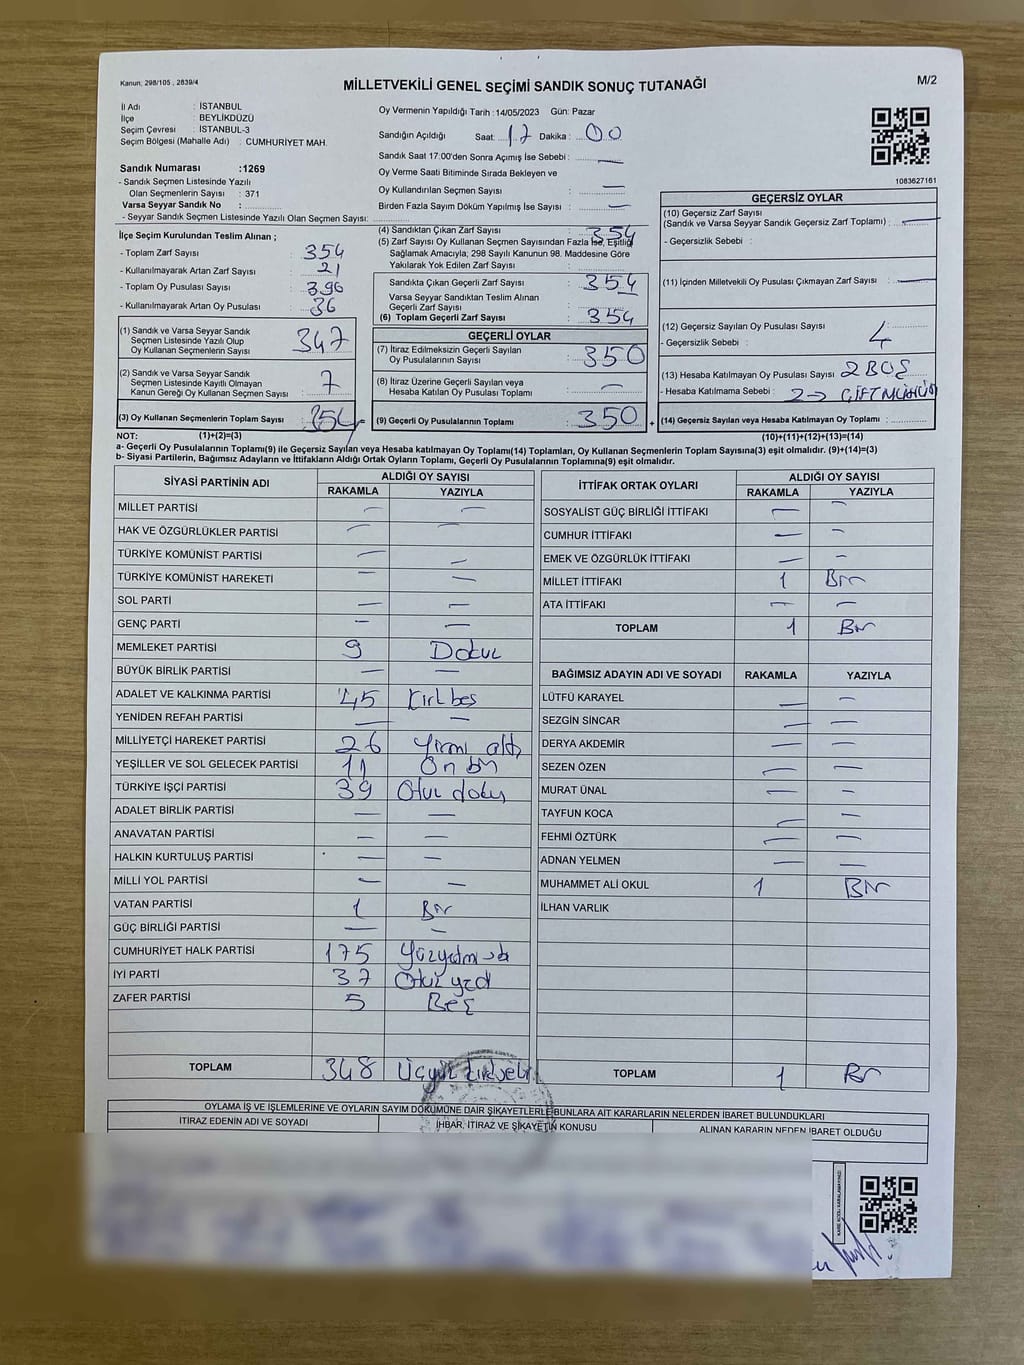 Kanun: 298/105 , 2839/4
MİLLETVEKİLİ GENEL SEÇİMİ SANDIK SONUÇ TUTANAĞI
M/2
İl Adı : İSTANBUL
İlçe : BEYLİKDÜZÜ
Seçim Çevresi : İSTANBUL-3
Seçim Bölgesi (Mahalle Adı) : CUMHURİYET MAH.
Sandık Numarası :1269
- Sandık Seçmen Listesinde Yazılı
Olan Seçmenlerin Sayısı : 371
Varsa Seyyar Sandık No :
- Seyyar Sandık Seçmen Listesinde Yazılı Olan Seçmen Sayısı:
Oy Vermenin Yapıldığı Tarih :14/05/2023 Gün: Pazar
Sandığın Açıldığı Saat: 17 Dakika : 00
Sandık Saat 17:00'den Sonra Açımış İse Sebebi : —
Oy Verme Saati Bitiminde Sırada Bekleyen ve
Oy Kullandırılan Seçmen Sayısı : —
Birden Fazla Sayım Döküm Yapılmış İse Sayısı : —
1083627161
İlçe Seçim Kurulundan Teslim Alınan ;
- Toplam Zarf Sayısı : 354
- Kullanılmayarak Artan Zarf Sayısı : 21
- Toplam Oy Pusulası Sayısı : 396
- Kullanılmayarak Artan Oy Pusulası : 36
(1) Sandık ve Varsa Seyyar Sandık
Seçmen Listesinde Yazılı Olup
Oy Kullanan Seçmenlerin Sayısı : 347
(2) Sandık ve Varsa Seyyar Sandık
Seçmen Listesinde Kayıtlı Olmayan
Kanun Gereği Oy Kullanan Seçmen Sayısı : 7
(3) Oy Kullanan Seçmenlerin Toplam Sayısı : 354
(4) Sandıktan Çıkan Zarf Sayısı : 354
(5) Zarf Sayısı Oy Kullanan Seçmen Sayısından Fazla İse, Eşitliği
Sağlamak Amacıyla; 298 Sayılı Kanunun 98. Maddesine Göre
Yakılarak Yok Edilen Zarf Sayısı :
Sandıkta Çıkan Geçerli Zarf Sayısı : 354
Varsa Seyyar Sandıktan Teslim Alınan
Geçerli Zarf Sayısı : —
(6) Toplam Geçerli Zarf Sayısı : 354
GEÇERLİ OYLAR
(7) İtiraz Edilmeksizin Geçerli Sayılan
Oy Pusulalarının Sayısı : 350
(8) İtiraz Üzerine Geçerli Sayılan veya
Hesaba Katılan Oy Pusulası Toplamı : —
(9) Geçerli Oy Pusulalarının Toplamı : 350 +
GEÇERSİZ OYLAR
(10) Geçersiz Zarf Sayısı
(Sandık ve Varsa Seyyar Sandık Geçersiz Zarf Toplamı) : —
- Geçersizlik Sebebi :
(11) İçinden Milletvekili Oy Pusulası Çıkmayan Zarf Sayısı : —
(12) Geçersiz Sayılan Oy Pusulası Sayısı : 4
- Geçersizlik Sebebi :
(13) Hesaba Katılmayan Oy Pusulası Sayısı : 2 BOŞ
- Hesaba Katılmama Sebebi : 2→ ÇİFT MÜHÜR
(14) Geçersiz Sayılan veya Hesaba Katılmayan Oy Toplamı :
NOT: (1)+(2)=(3) (10)+(11)+(12)+(13)=(14)
a- Geçerli Oy Pusulalarının Toplamı(9) ile Geçersiz Sayılan veya Hesaba katılmayan Oy Toplamı(14) Toplamları, Oy Kullanan Seçmenlerin Toplam Sayısına(3) eşit olmalıdır. (9)+(14)=(3)
b- Siyasi Partilerin, Bağımsız Adayların ve İttifakların Aldığı Ortak Oyların Toplamı, Geçerli Oy Pusulalarının Toplamına(9) eşit olmalıdır.
SİYASİ PARTİNİN ADI ALDIĞI OY SAYISI
RAKAMLA YAZIYLA
MİLLET PARTİSİ — —
HAK VE ÖZGÜRLÜKLER PARTİSİ — —
TÜRKİYE KOMÜNİST PARTİSİ — —
TÜRKİYE KOMÜNİST HAREKETİ — —
SOL PARTİ — —
GENÇ PARTİ — —
MEMLEKET PARTİSİ 9 Dokuz
BÜYÜK BİRLİK PARTİSİ — —
ADALET VE KALKINMA PARTİSİ 45 Kırkbeş
YENİDEN REFAH PARTİSİ — —
MİLLİYETÇİ HAREKET PARTİSİ 26 Yirmi altı
YEŞİLLER VE SOL GELECEK PARTİSİ 11 On bir
TÜRKİYE İŞÇİ PARTİSİ 39 Otuz dokuz
ADALET BİRLİK PARTİSİ — —
ANAVATAN PARTİSİ — —
HALKIN KURTULUŞ PARTİSİ — —
MİLLİ YOL PARTİSİ — —
VATAN PARTİSİ 1 Bir
GÜÇ BİRLİĞİ PARTİSİ — —
CUMHURİYET HALK PARTİSİ 175
İYİ PARTİ 37 Otuz yedi
ZAFER PARTİSİ 5 Beş
TOPLAM 348 Üçyüz kırksekiz
İTTİFAK ORTAK OYLARI ALDIĞI OY SAYISI
RAKAMLA YAZIYLA
SOSYALİST GÜÇ BİRLİĞİ İTTİFAKI — —
CUMHUR İTTİFAKI — —
EMEK VE ÖZGÜRLÜK İTTİFAKI — —
MİLLET İTTİFAKI 1 Bir
ATA İTTİFAKI — —
TOPLAM 1 Bir
BAĞIMSIZ ADAYIN ADI VE SOYADI RAKAMLA YAZIYLA
LÜTFÜ KARAYEL — —
SEZGİN SİNCAR — —
DERYA AKDEMİR — —
SEZEN ÖZEN — —
MURAT ÜNAL — —
TAYFUN KOCA — —
FEHMİ ÖZTÜRK — —
ADNAN YELMEN — —
MUHAMMET ALİ OKUL 1 Bir
İLHAN VARLIK
TOPLAM 1 Bir
OYLAMA İŞ VE İŞLEMLERİNE VE OYLARIN SAYIM DÖKÜMÜNE DAİR ŞİKAYETLERLE BUNLARA AİT KARARLARIN NELERDEN İBARET BULUNDUKLARI
İTİRAZ EDENİN ADI VE SOYADI İHBAR, İTİRAZ VE ŞİKAYETİN KONUSU ALINAN KARARIN NEDEN İBARET OLDUĞU